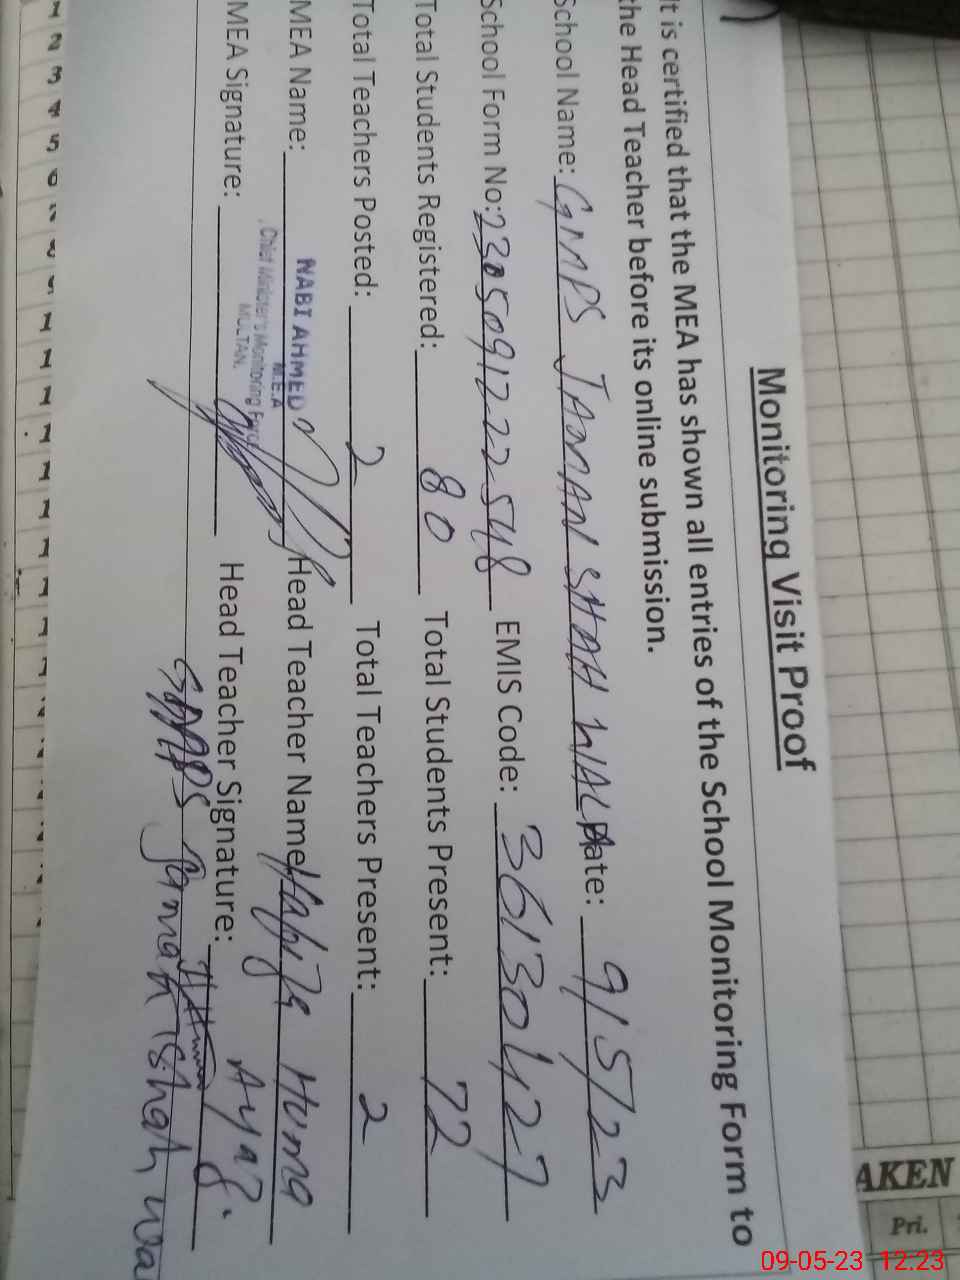 Monitoring Visit Proof
It is certified that the MEA has shown all entries of the School Monitoring Form to
the Head Teacher before its online submission.
School Name: GMPS JAMAN SHAH WALA Date: 9/5/23
School Form No: 2305091222548 EMIS Code: 36130427
Total Students Registered: 80 Total Students Present: 72
Total Teachers Posted: 2 Total Teachers Present: 2
MEA Name: NABI AHMED Head Teacher Name Hafiza Huma
M.E.A
Chief Minister's Monitoring Force
MULTAN.
MEA Signature: Head Teacher Signature:
GMPS Jaman shah wa
AKEN
Pri.
09-05-23 12.23